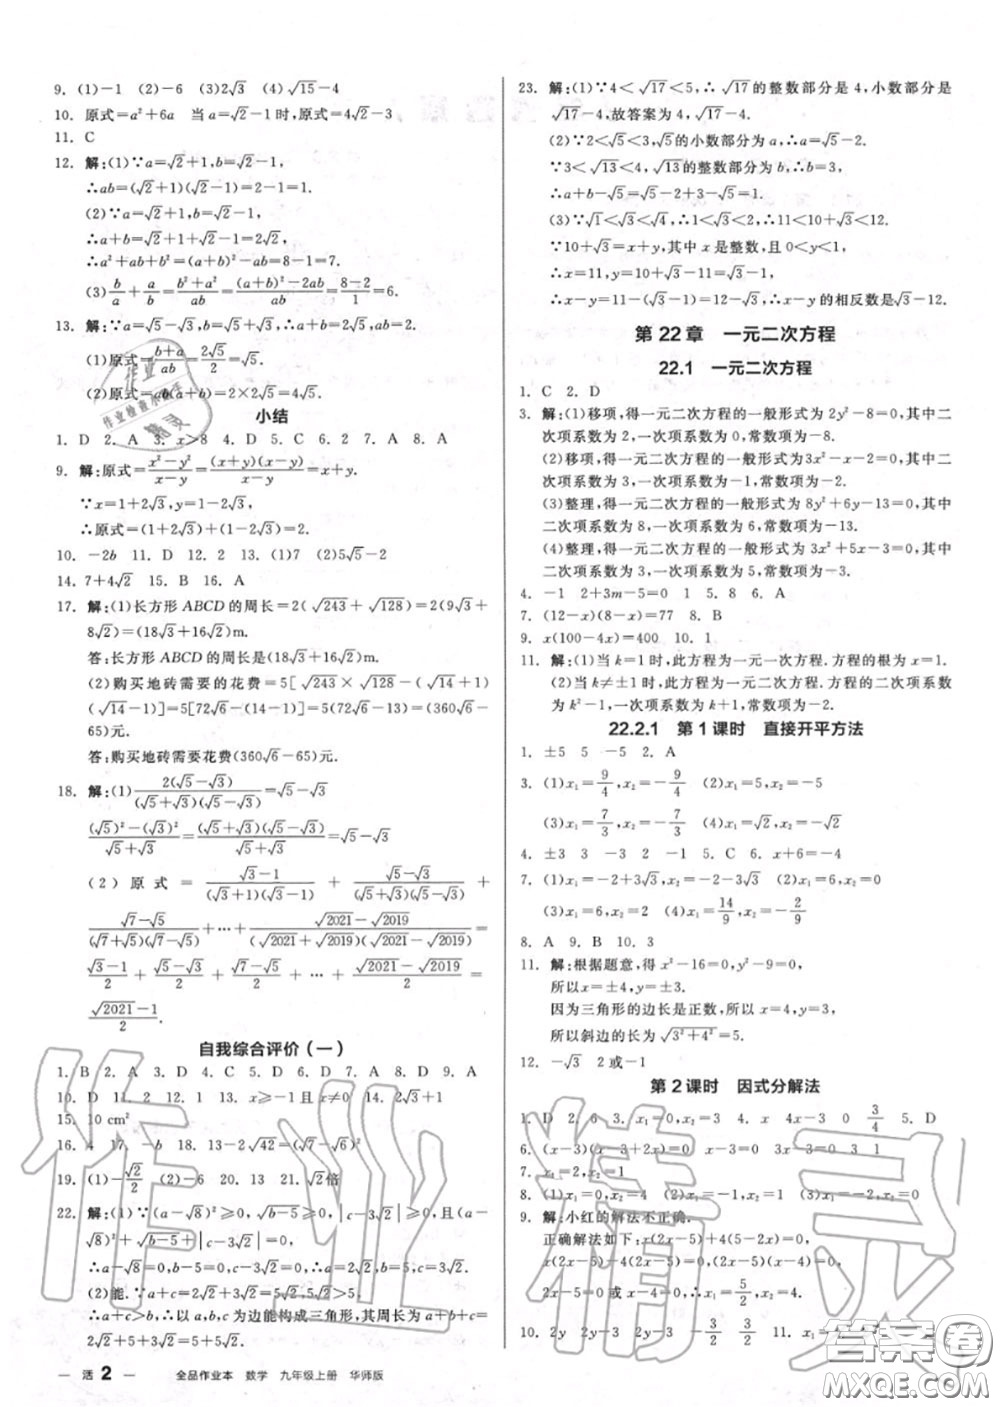 9. (1)-1 (2)-6 (3)2√3 (4)√15-4
10. 原式=a²+6a 当a=√2-1时,原式=4√2-3
11. C
12. 解:(1)∵a=√2+1,b=√2-1,
∴ab=(√2+1)(√2-1)=2-1=1.
(2)∵a=√2+1,b=√2-1,
∴a+b=√2+1+√2-1=2√2,
∴a²+b²=(a+b)²-2ab=8-1=7.
(3)b/a+a/b=(b²+a²)/ab=((a+b)²-2ab)/ab=(8-2)/1=6.
13. 解:∵a=√5-√3,b=√5+√3,∴a+b=2√5,ab=2.
(1)原式=(b+a)/ab=2√5/2=√5.
(2)原式=ab(a+b)=2×2√5=4√5.
小结
1. D 2. A 3. x>8 4. D 5. C 6. 2 7. B 8. A
9. 解:原式=(x²-y²)/(x-y)=(x+y)(x-y)/(x-y)=x+y.
∵x=1+2√3,y=1-2√3,
∴原式=(1+2√3)+(1-2√3)=2.
10. -2b 11. D 12. 2 13. (1)7 (2)5√5-2
14. 7+4√2 15. B 16. A
17. 解:(1)长方形ABCD的周长=2(√243+√128)=2(9√3+
8√2)=(18√3+16√2)m.
答:长方形ABCD的周长是(18√3+16√2)m.
(2)购买地砖需要的花费=5[√243×√128-(√14+1)
(√14-1)]=5[72√6-(14-1)]=5(72√6-13)=(360√6-
65)元.
答:购买地砖需要花费(360√6-65)元.
18. 解:(1)2(√5-√3)/((√5+√3)(√5-√3))=√5-√3
((√5)²-(√3)²)/(√5+√3)=(√5+√3)(√5-√3)/(√5+√3)=√5-√3
(2)原式=(√3-1)/((√3+1)(√3-1))+(√5-√3)/((√5+√3)(√5-√3))+
(√7-√5)/((√7+√5)(√7-√5))+⋯+(√2021-√2019)/((√2021+√2019)(√2021-√2019))=
(√3-1)/2+(√5-√3)/2+(√7-√5)/2+⋯+(√2021-√2019)/2=
(√2021-1)/2.
自我综合评价(一)
1. B 2. A 3. D 4. C 5. D 6. B 7. B 8. D 9. A
10. D 11. D 12. 1 13. x≥-1且x≠0 14. 2√3+1
15. 10 cm²
16. 4 17. -b 18. 13-2√42=(√7-√6)²
19. (1)-√2/2 (2)-6 20. 13 21. √2倍
22. 解:(1)∵(a-√8)²≥0,√b-5≥0,|c-3√2|≥0,且(a-
√8)²+√b-5+|c-3√2|=0,
∴a-√8=0,b-5=0,c-3√2=0,∴a=2√2,b=5,c=3√2.
(2)能.∵a+c=2√2+3√2=5√2,5√2>5,
∴a+c>b,∴以a,b,c为边能构成三角形,其周长=a+b+c=
2√2+5+3√2=5+5√2.
23. 解:(1)∵4<√17<5,∴√17的整数部分是4,小数部分是
√17-4,故答案为4,√17-4.
(2)∵2<√5<3,∴√5的小数部分为a,∴a=√5-2.
∵3<√13<4,∴√13的整数部分为b,∴b=3,
∴a+b-√5=√5-2+3-√5=1.
(3)∵√1<√3<√4,∴1<√3<2,∴11<10+√3<12.
∵10+√3=x+y,其中x是整数,且0<y<1,
∴x=11,y=10+√3-11=√3-1,
∴x-y=11-(√3-1)=12-√3,∴x-y的相反数是√3-12.
第22章 一元二次方程
22.1 一元二次方程
1. C 2. D
3. 解:(1)移项,得一元二次方程的一般形式为2y²-8=0,其中二
次项系数为2,一次项系数为0,常数项为-8.
(2)移项,得一元二次方程的一般形式为3x²-2x=0,其中二
次项系数为3,一次项系数为-2,常数项为0.
(3)整理,得一元二次方程的一般形式为8y²+6y-13=0,其中
二次项系数为8,一次项系数为6,常数项为-13.
(4)整理,得一元二次方程的一般形式为3x²+5x-3=0,其中
二次项系数为3,一次项系数为5,常数项为-3.
4. -1 2+3m-5=0 1 5. 8 6. A
7. (12-x)(8-x)=77 8. B
9. x(100-4x)=400 10. 1
11. 解:(1)当k=1时,此方程为一元一次方程.方程的根为x=1.
(2)当k≠±1时,此方程为一元二次方程.方程的二次项系数
为k²-1,一次项系数为k+1,常数项为-2.
22.2.1 第1课时 直接开平方法
1. ±5 5 -5 2. A
3. (1)x₁=9/4,x₂=-9/4 (2)x₁=5,x₂=-5
(3)x₁=7/3,x₂=-7/3 (4)x₁=√2,x₂=-√2
4. ±3 3 -3 2 -1 5. C 6. x+6=-4
7. (1)x₁=-2+3√3,x₂=-2-3√3 (2)x₁=7,x₂=0
(3)x₁=6,x₂=2 (4)x₁=14/9,x₂=-2/9
8. A 9. B 10. 3
11. 解:根据题意,得x²-16=0,y²-9=0,
所以x=±4,y=±3.
因为三角形的边长是正数,所以x=4,y=3,
所以斜边的长为√3²+4²=5.
12. -√3 2或-1
第2课时 因式分解法
1. D 2. 6 3. x₁=0,x₂=-1 4. x 4x-3 0 3/4 5. D
6. (x-3)(x-3+2x)=0
7. x₁=2,x₂=1
8. (1)x₁=0,x₂=4
9. 解:小红的解法不正确.
正确解法如下:x(2x-5)+4(2x-5)=0,
10. 2y
活 2
全品作业本 数学 九年级上册 华师版
作业精灵
答案圈
MXQE.COM